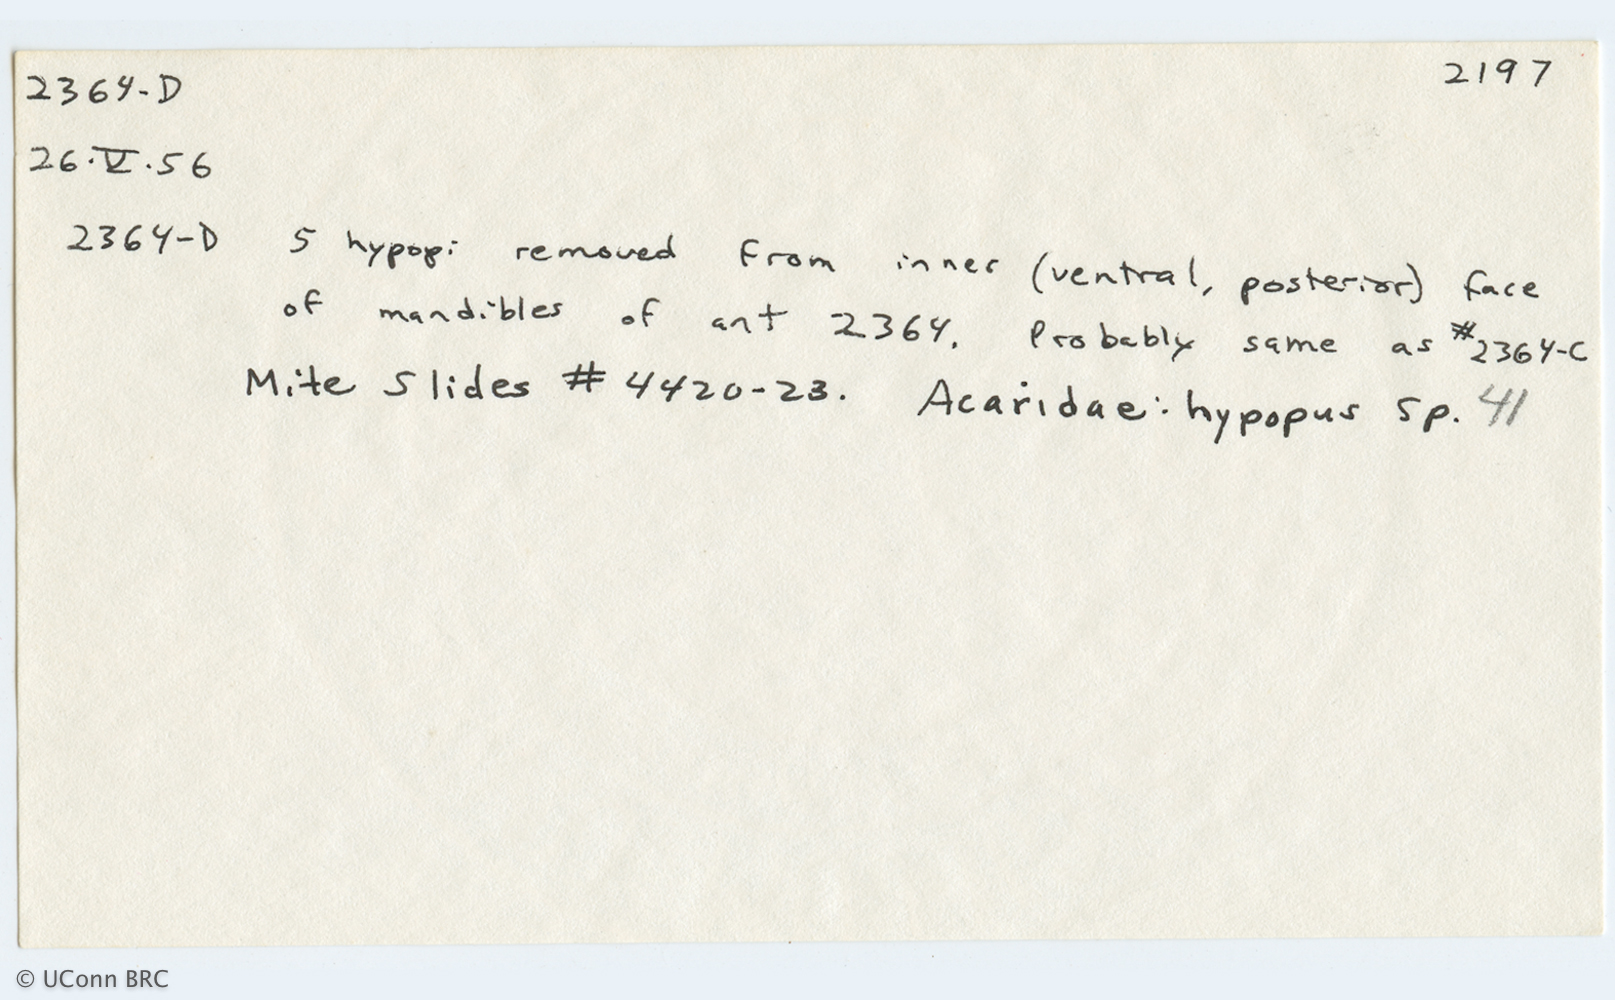 2364-D
2197
26·V·56
2364-D 5 hypopi removed from inner (ventral, posterior) face
of mandibles of ant 2364. Probably same as #2364-C
Mite slides # 4420-23. Acaridae: hypopus sp. 41
© UConn BRC